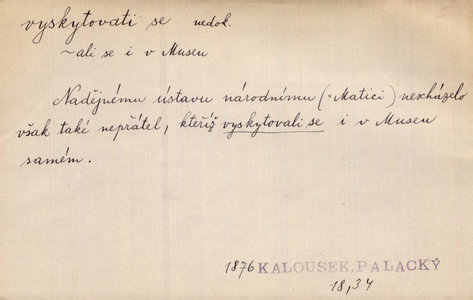 vyskytovati se nedok.
~ali se i v Museu
Nadějnému ústavu národnímu (=Matici) nescházelo
však také nepřátel, kteříž vyskytovali se i v Museu
samém.
1876 KALOUSEK, PALACKÝ
18,34